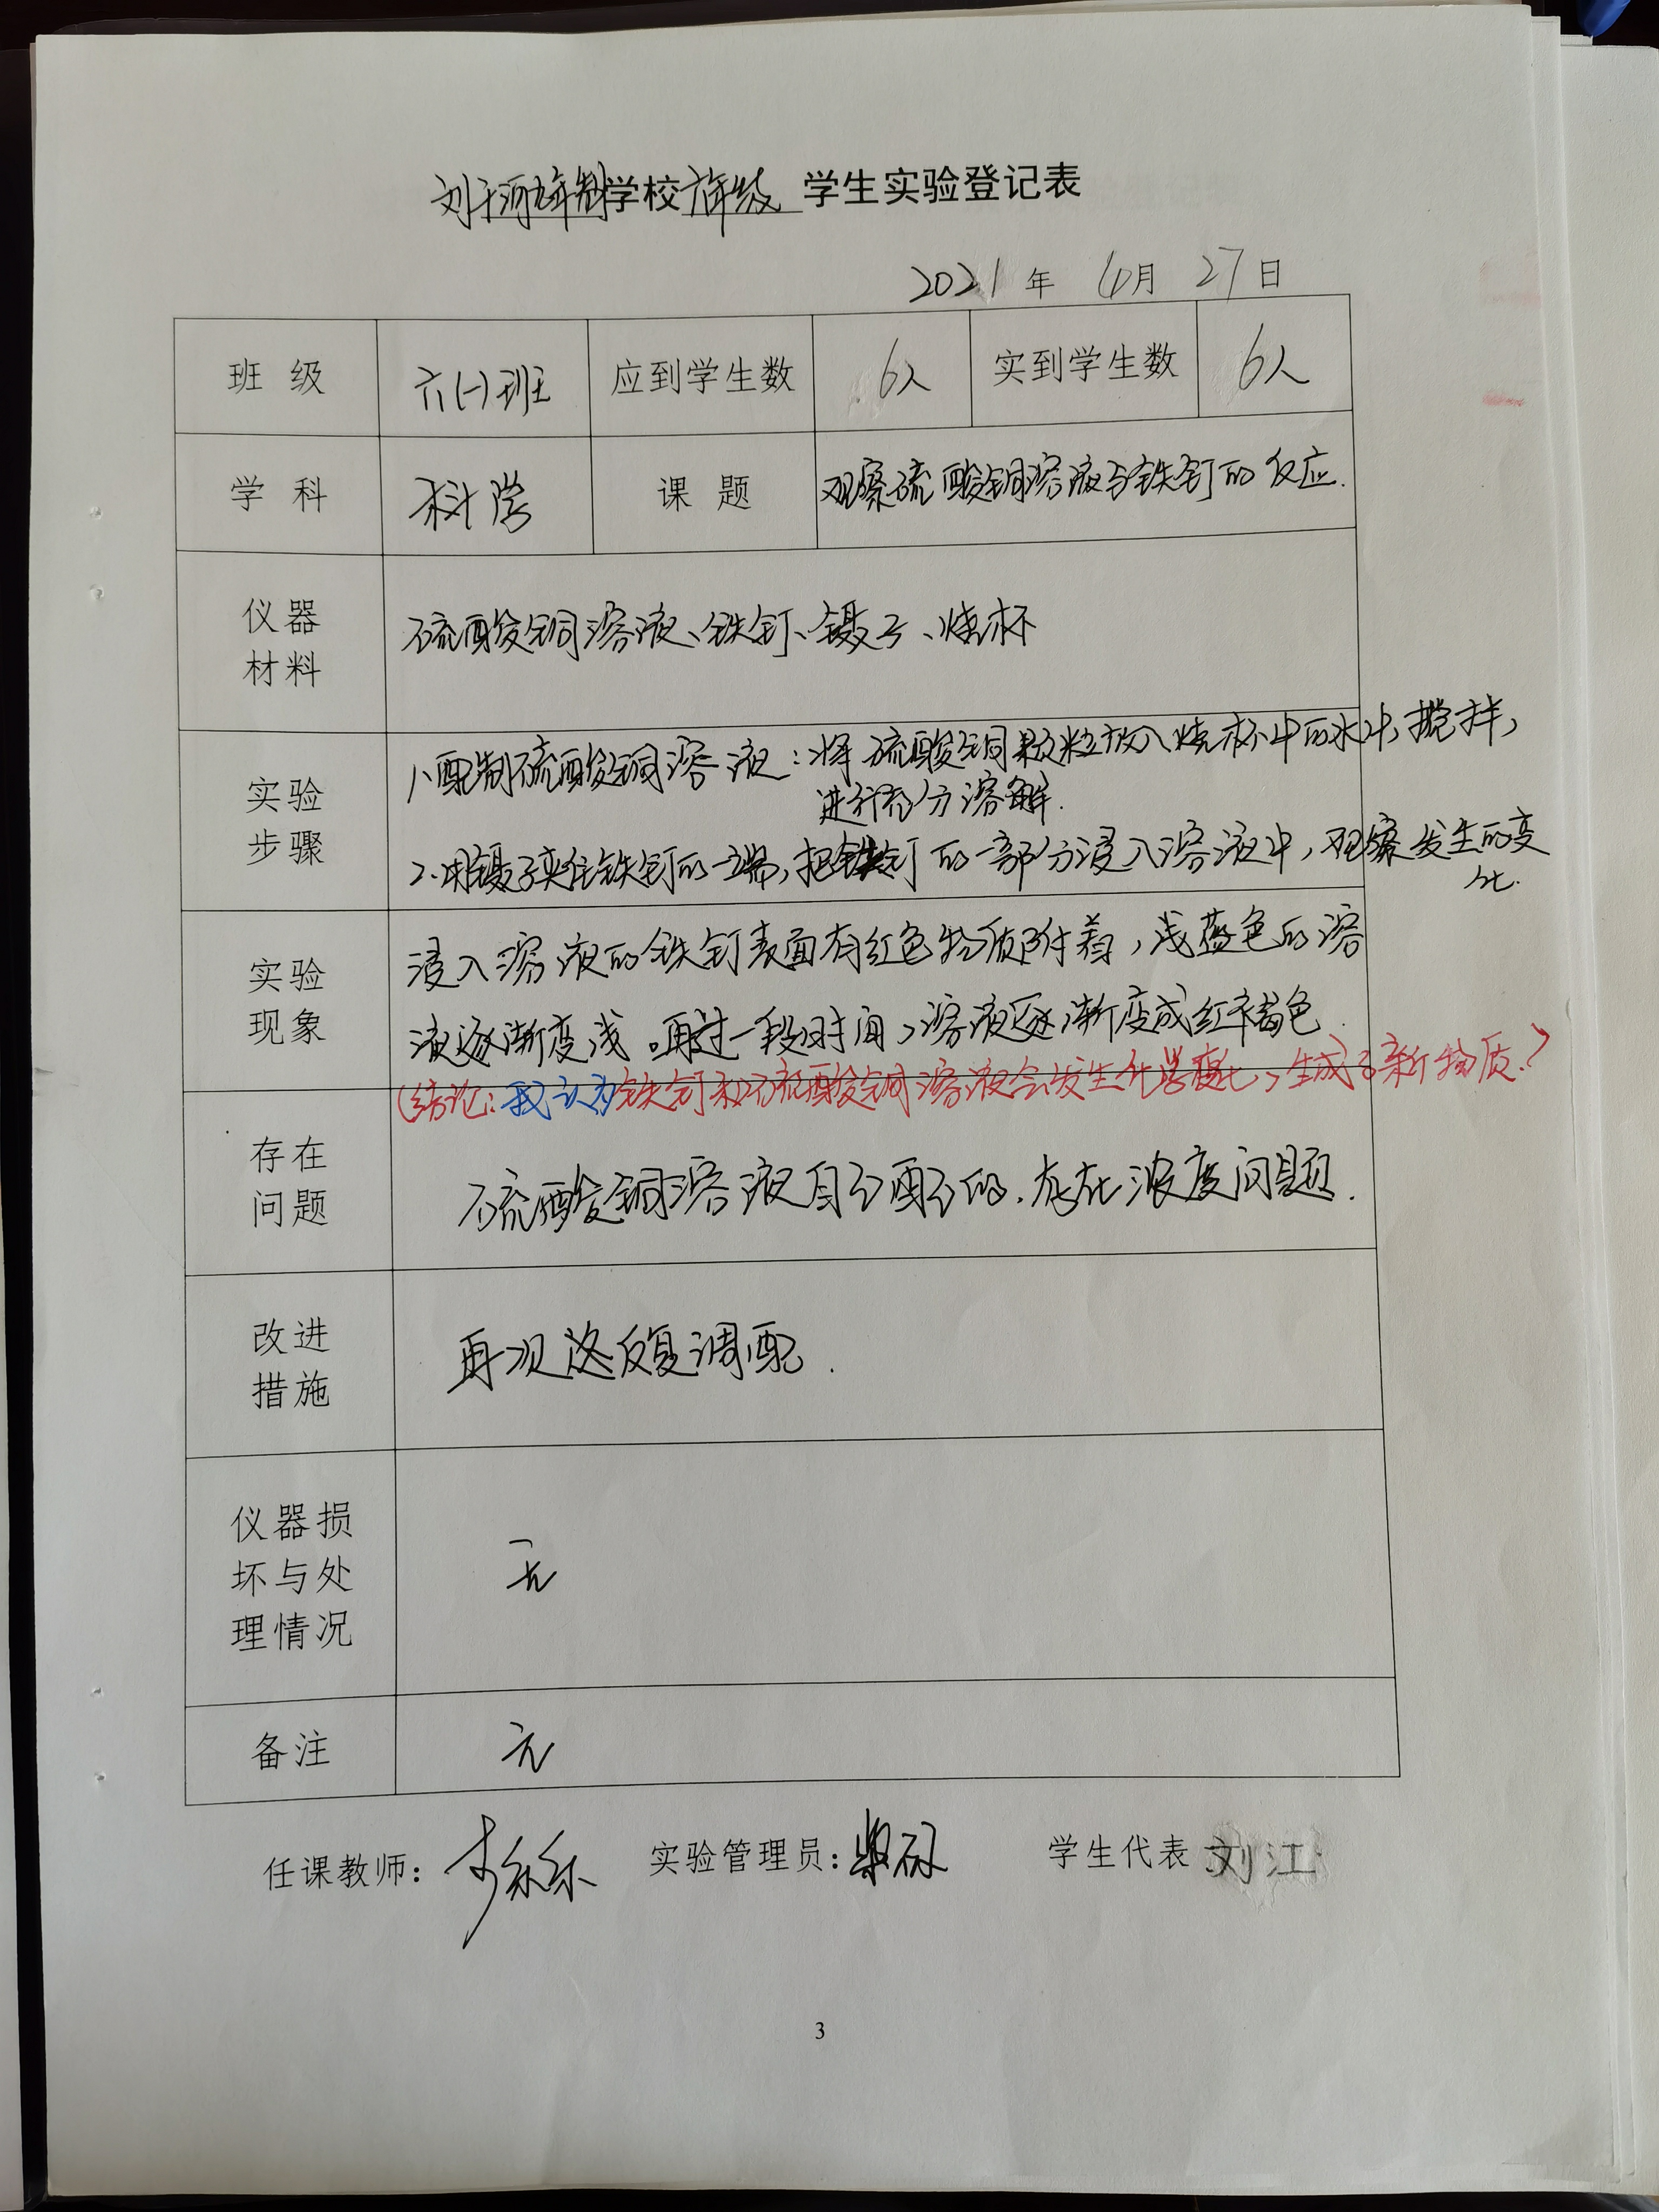 刘干河九年制学校六年级 学生实验登记表
2021 年 4月 27日
班 级 六(一)班 应到学生数 6人 实到学生数 6人
学 科 科学 课 题 观察硫酸铜溶液与铁钉的反应.
仪器
材料
硫酸铜溶液、铁钉、镊子、烧杯
实验
步骤
1、配制硫酸铜溶液:将硫酸铜颗粒放入烧杯中的水中,搅拌,
进行充分溶解.
2.用镊子夹住铁钉的一端,把铁钉的一部分浸入溶液中,观察发生的变
化.
实验
现象
浸入溶液的铁钉表面有红色物质附着,浅蓝色的溶
液逐渐变浅。再过一段时间,溶液逐渐变成红褐色.
(结论:我认为铁钉和硫酸铜溶液会发生化学变化,生成了新物质.)
存在
问题
硫酸铜溶液自己配的.存在浓度问题.
改进
措施
再次 反复调配.
仪器损
坏与处
理情况
无
备注 无
任课教师: 实验管理员: 学生代表 刘江
3